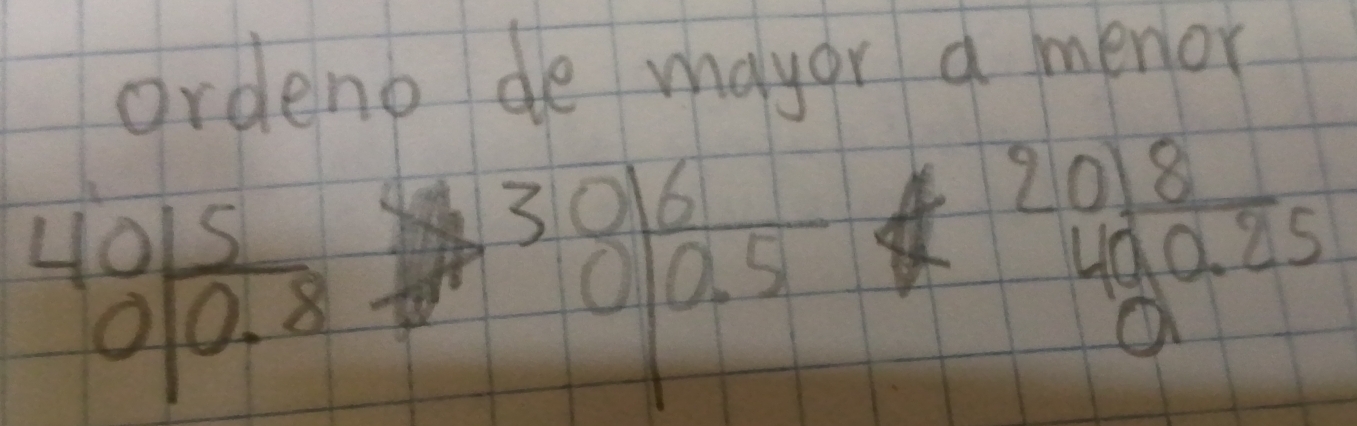 ordeno de mayor a menor
40|5 > 30|6 < 20|8
0|0.8 0|0.5 40 0.25
0